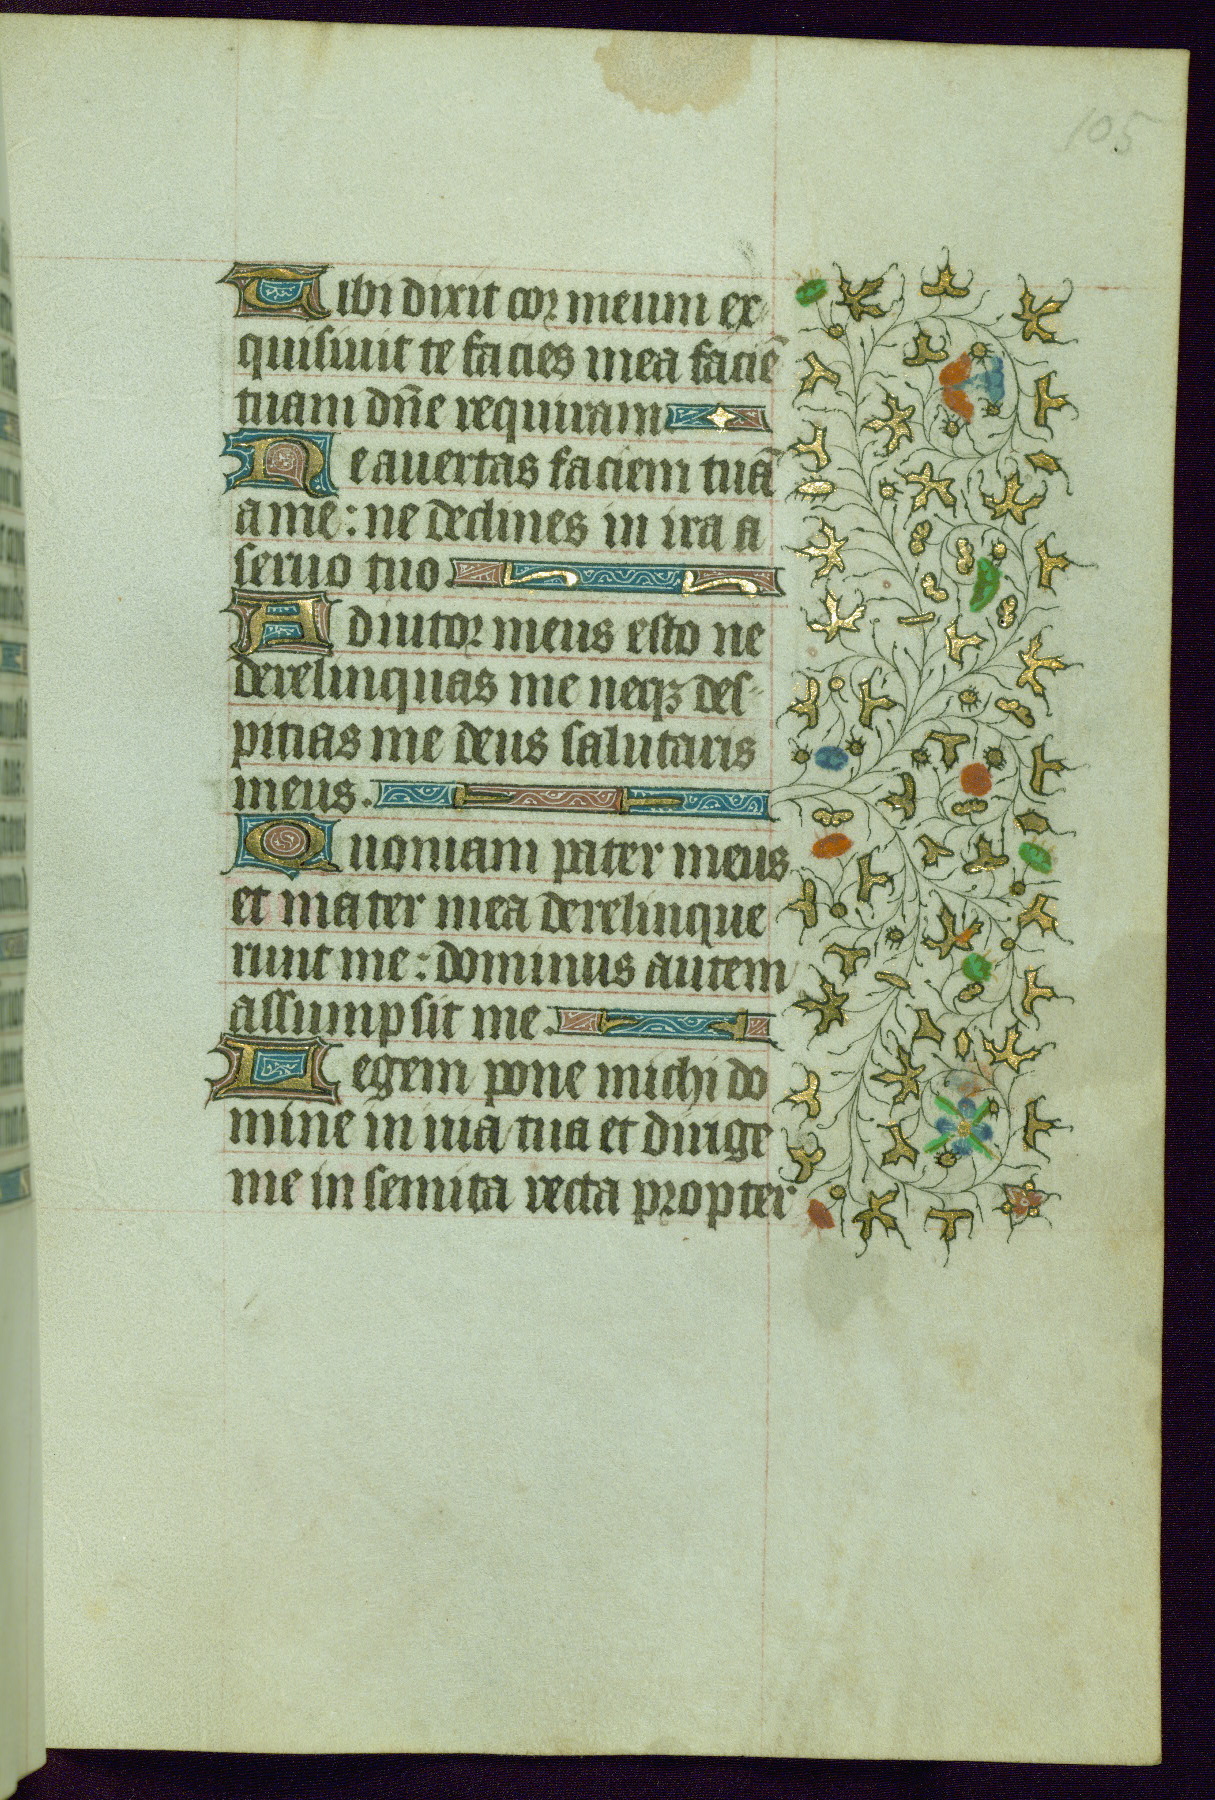 105
Tibi dixit cor meum ex
quisiuit te facies mea faciē
tuam dn̄e requiram
Ne auertas faciem tuā
a me : ne declines in ira a
seruo tuo.
Adiutor meus esto ne
derelinquas me neqꝫ des-
picias me deus salutaris
meus.
Quoniam pater meus
et mater mea derelinque
runt me : dominus autem
assumpsit me.
Legem pone michi do
mine in uia tua et dirige
me in semita recta propter